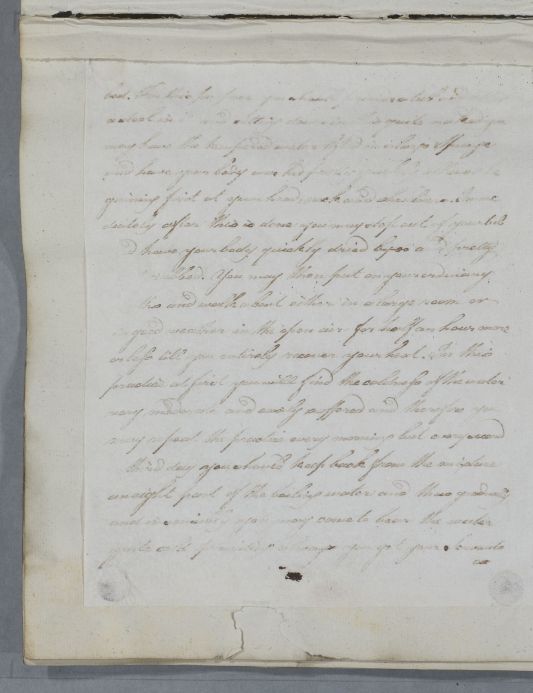 bed. For this purpose you should
a stool in it and sitting down in it quite naked you
may have the tempered water lifted in a large Spunge
and have your body
ginning first at your head, neck and shoulders. Imme
diately after this is done you may step out of your tub
& have your body quickly dried up and pretty
rubbed. You may then put on your ordinary
and walk about either in a large room or
in good weather in the open air for half an hour more
or less till you entirely recover your heat. In this
practice at first you will find the coldness of the water
very moderate and easily suffered and therefore you
may repeat the practice every morning but every second
third day you should keep back from the mixture
an eight part of the boiling water and thus gradually
and you may come to bear the water
quite cold provided always you get your